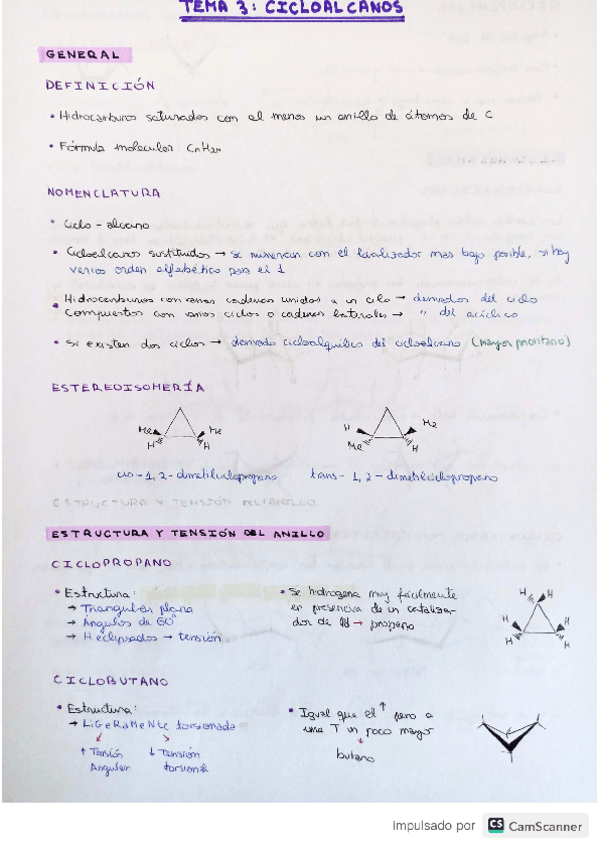 TEMA 3: CICLOALCANOS
GENERAL
DEFINICIÓN
• Hidrocarburos saturados con al menos un anillo de átomos de C
• Fórmula molecular CnH2n
NOMENCLATURA
• Ciclo - alcano
• Cicloalcanos sustituidos → se numeran con el localizador mas bajo posible, si hay
varios orden alfabético para el 1
• Hidrocarburos con varias cadenas unidas a un ciclo → derivados del ciclo
Compuestos con varios ciclos o cadenas laterales → " del acíclico
• Si existen dos ciclos → derivado cicloalquílico del cicloalcano (mayor prioritario)
ESTEREOISOMERÍA
Me Me
H H
H Me
Me H
cis - 1, 2 - dimetilciclopropano
trans - 1, 2 - dimetilciclopropano
ESTRUCTURA Y TENSIÓN DEL ANILLO
CICLOPROPANO
• Estructura:
→ Triangular plana
→ Ángulos de 60°
→ H eclipsados → tensión
• Se hidrogena muy fácilmente
en presencia de un cataliza-
dor de → propano
H H
H H
H H
CICLOBUTANO
• Estructura:
→ LiGeRaMeNtE torsionada
↑ Tensión
Angular
↓ Tensión
torsional
• Igual que el ↑ pero a
una T un poco mayor
↓
butano
Impulsado por CS CamScanner